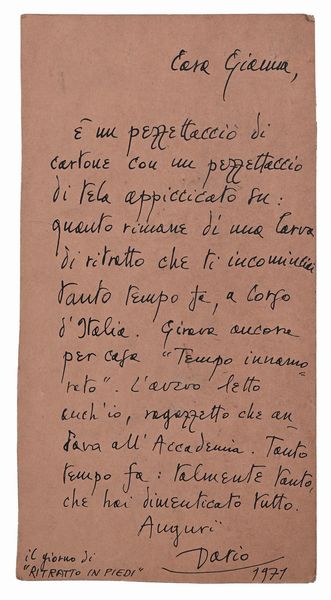 Cara Gianna,
È un pezzettaccio di
cartone con un pezzettaccio
di tela appiccicato su:
quanto rimane di una larva
di ritratto che ti incominciai
tanto tempo fa, a Corso
d'Italia. Girava ancora
per casa "Tempo innamo-
rato". L'avevo letto
anch'io, ragazzetto che an-
dava all'Accademia. Tanto
tempo fa: talmente tanto,
che hai dimenticato tutto.
Auguri
Dario
il giorno di
"RITRATTO IN PIEDI"
1971